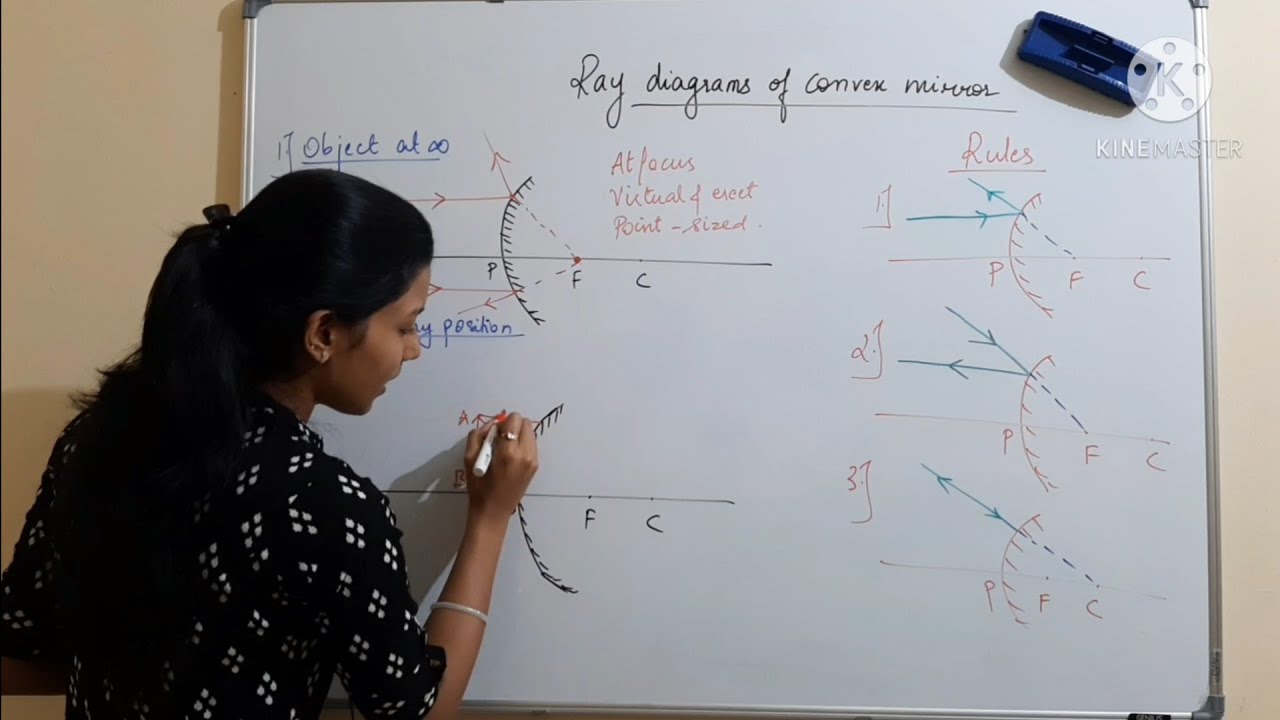 Ray diagrams of convex mirror
1.] Object at ∞
At focus
Virtual & erect
Point-sized.
P F C
position
A
B
F C
Rules
1.]
P F C
2.]
P F C
3.]
P F C
K
KINEMASTER